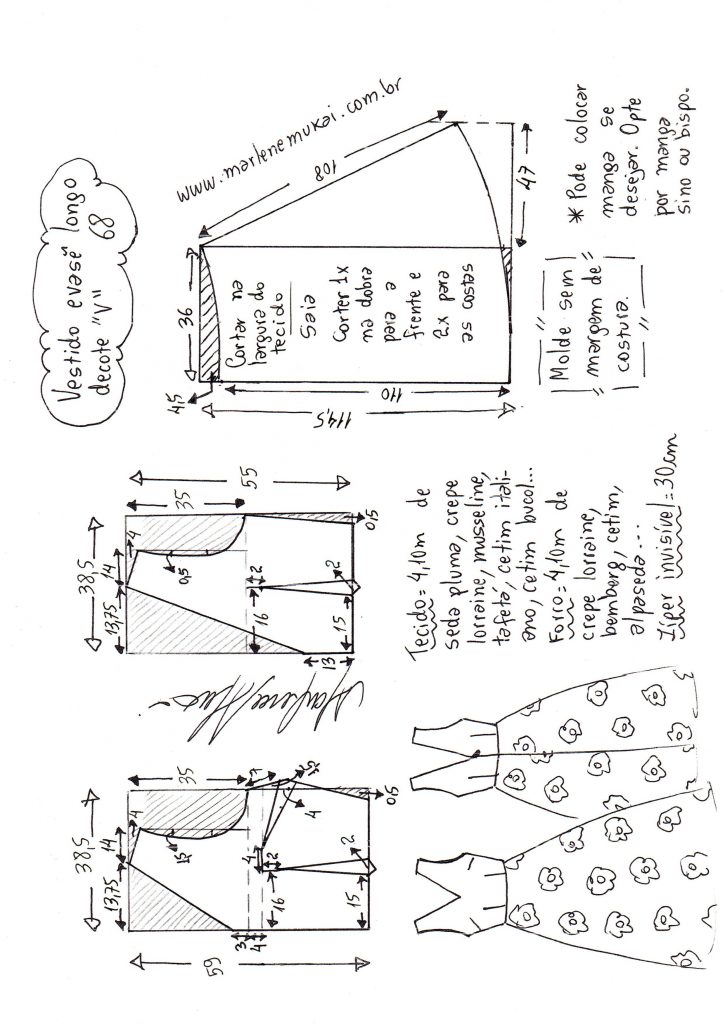 Vestido evasê longo
decote "V" 68
www.marlenemukai.com.br
36
108
4,5
Cortar na
largura do
tecido
Saia
Corter 1x
na dobra
para a
frente e
2x para
as costas
110
114,5
47
* Pode colocar
manga se
desejar. Opte
por manga
sino ou bispo.
Molde sem
margem de
costura.
38,5
13,75
14
4
35
55
0,5
2
16
15
2
13
0,5
38,5
13,75
14
4
35
59
1,5
7
4
4
2
16
3
4
15
2
0,5
Tecido = 4,10m de
seda pluma, crepe
lorraine, musseline,
tafetá, cetim itali-
ano, cetim bucol...
Forro = 4,10m de
crepe lorraine,
bemberg, cetim,
alpaseda...
Zíper invisível = 30cm